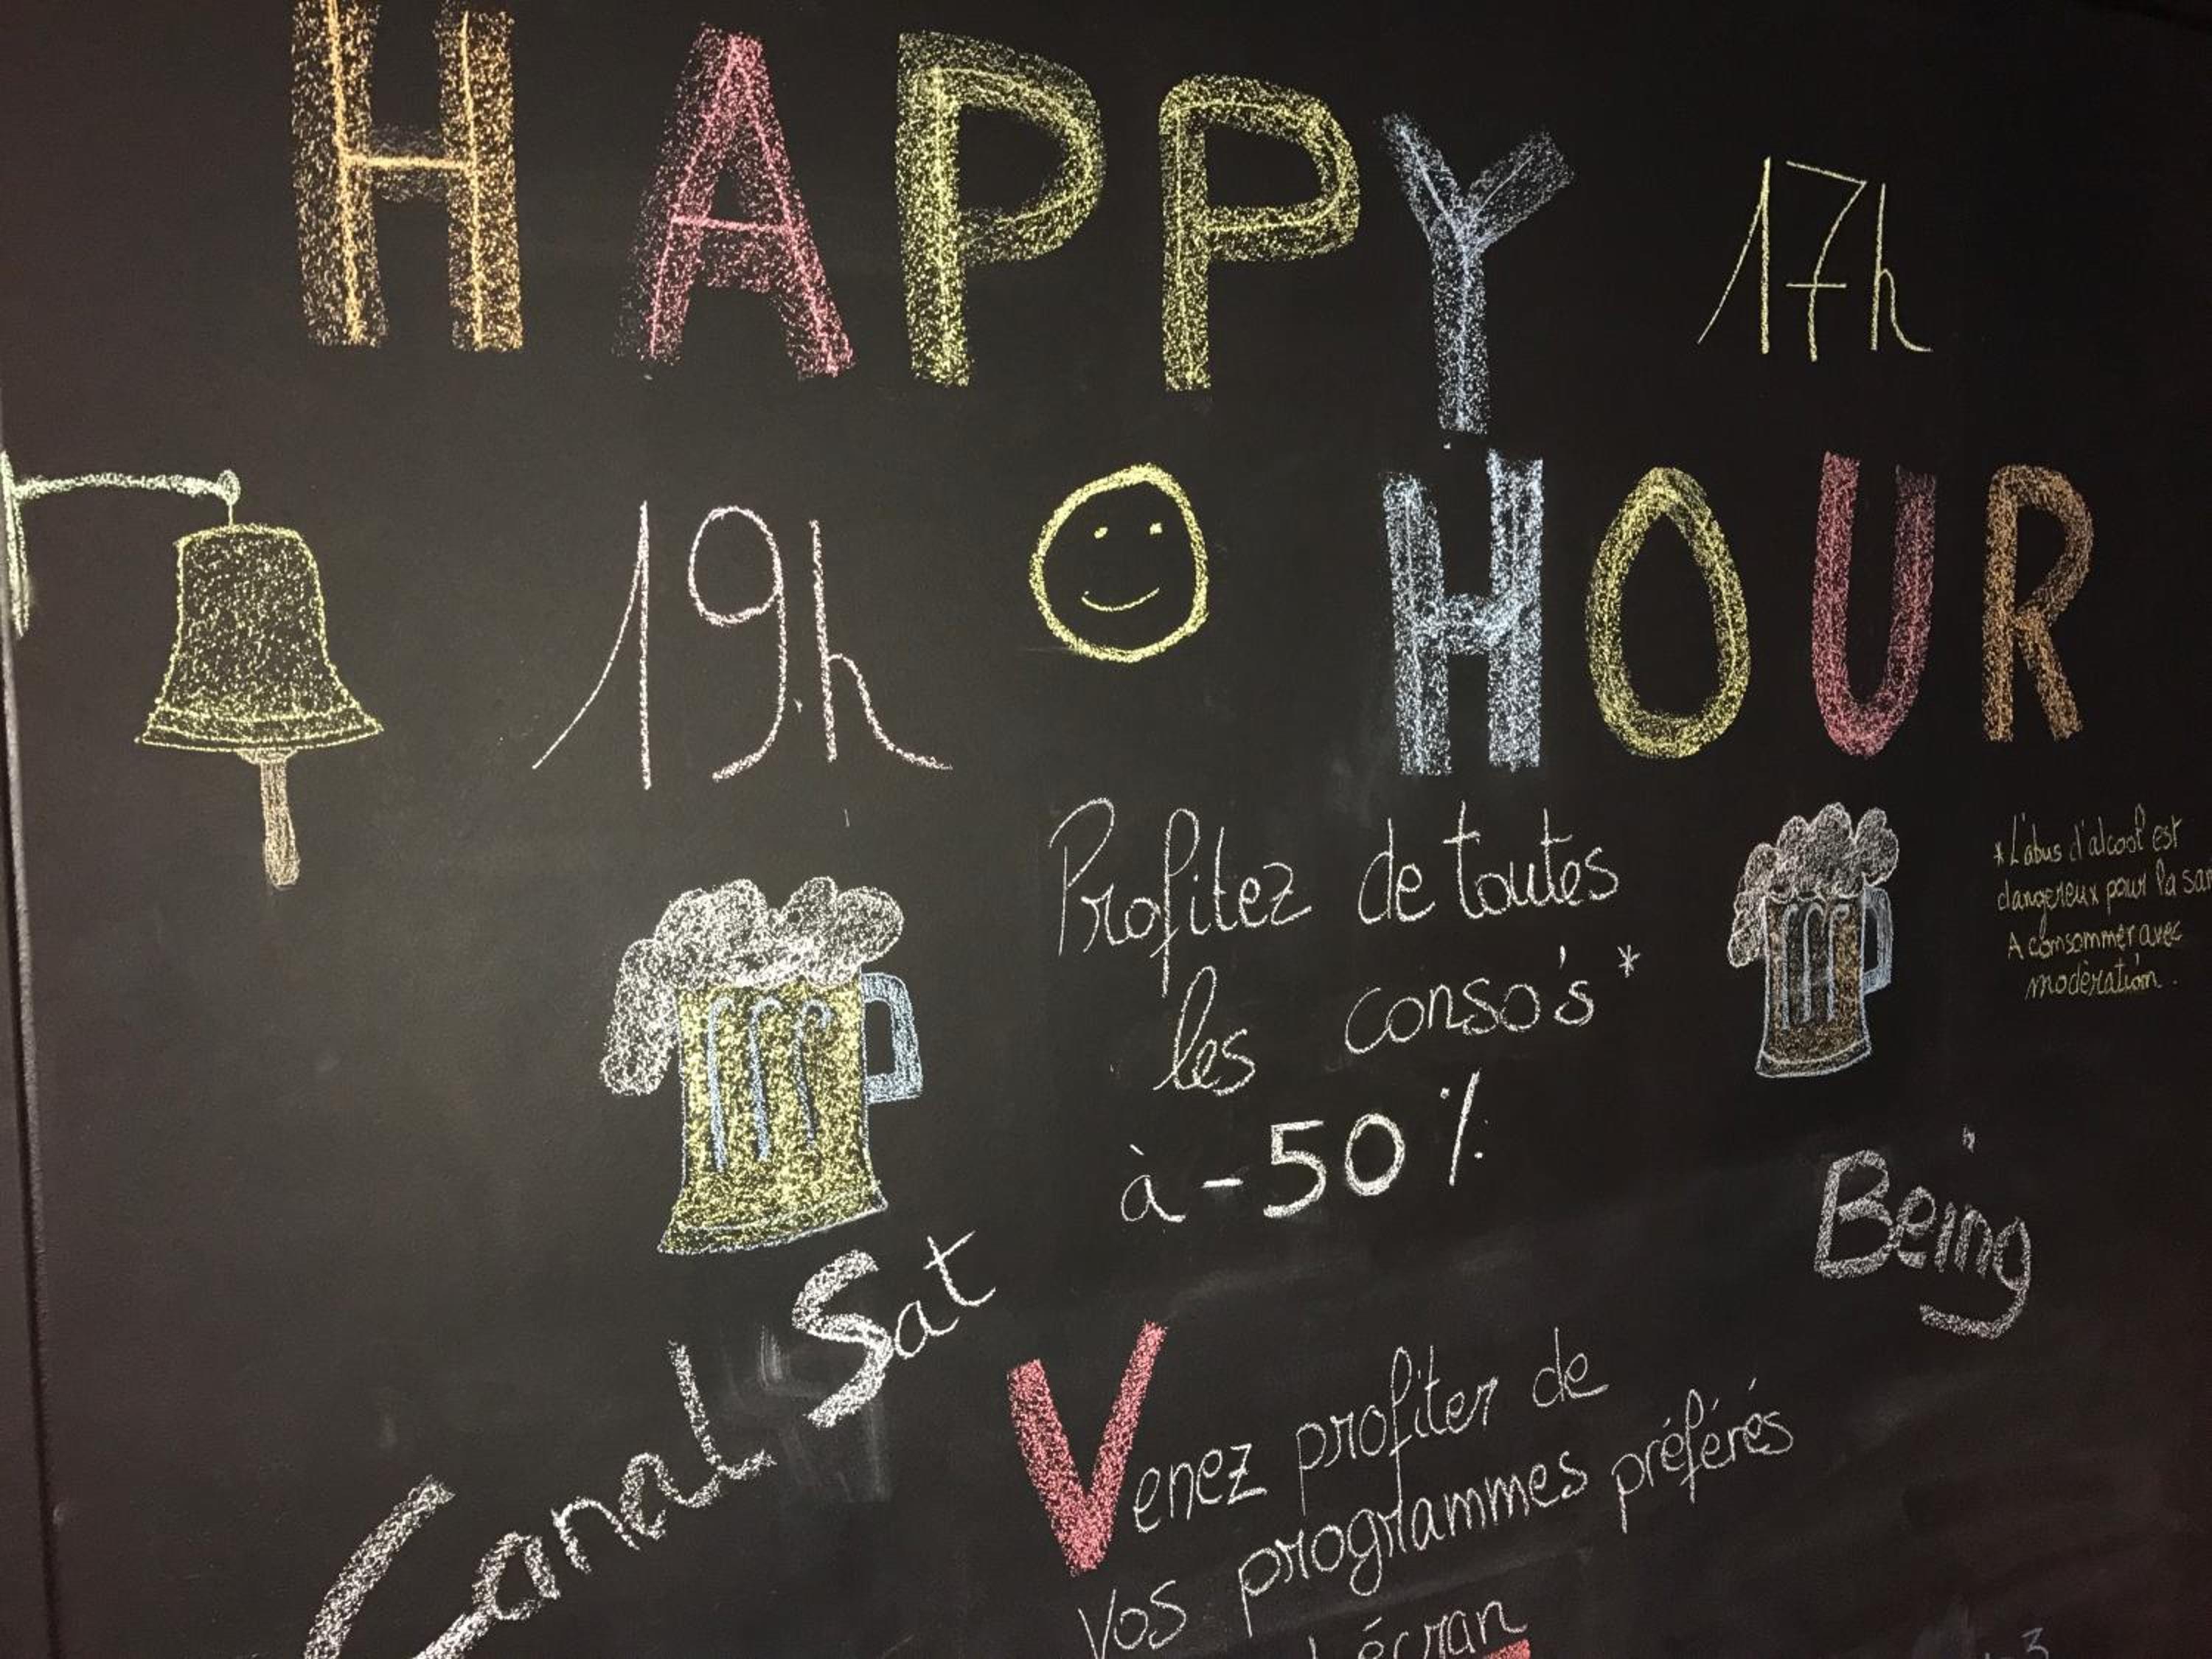 HAPPY 17h
19h HOUR
Profitez de toutes
les conso's*
à -50%
*L'abus d'alcool est
dangereux pour la
A consommer avec
modération.
Being
Canal Sat
Venez profiter de
vos programmes préférés
écran